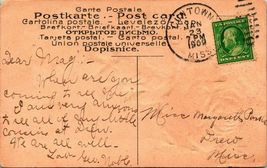 Carte Postale
Postkarte - Post card
Cartolina postale - Levelező-Lap
Brefkort Briefkaart Brevkort
ОТКРЫТОЕ ПИСЬМО.
Tarjeta postal - Cartão postal
Union postale universelle
Dopisnice.
TOWN
23
1909
MISS.
Dear Mag:-
When are you
coming to see us
I am very anxious
to see all of you
cousins at Drew.
We are all well.
Miss Margarite
Drew
Miss.